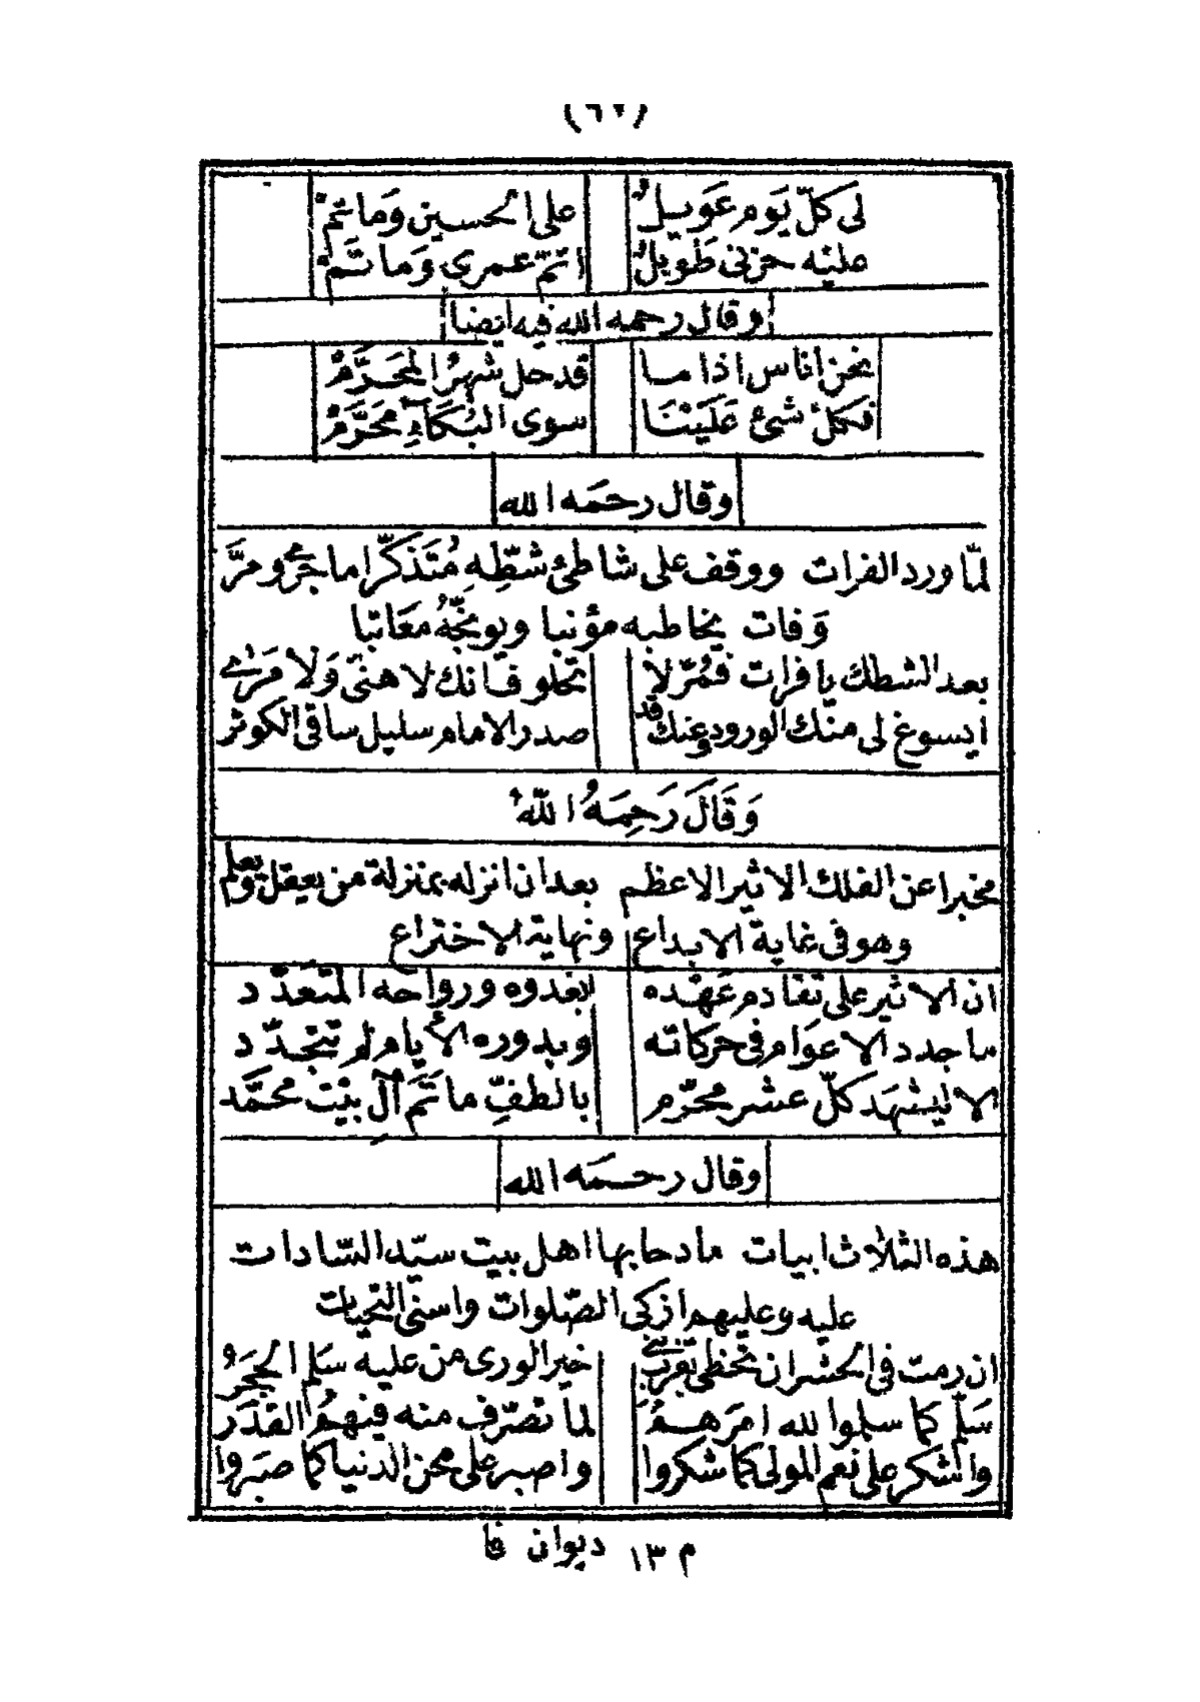 لى كلّ يوم عَويلٌ على الحسين وَماتمْ
عليه حزنى طَويلٌ اتمّ عمرى وَما تَمّ
وقال رحمه الله فيه ايضا
نحن اناس اذا ما قد حل شهرُ المُحَرَّمْ
فكلّ شئ عَلَيْنَا سوى البُكَآءِ مُحَرَّمْ
وقال رحمَه الله
لمّا ورد الفرات ووقف على شاطئ شطِّهِ مُتَذكّرا ما جرى ومرَّ
وَفات يخاطبه مؤنبا ويوبخّهُ معَاتبا
بعد الشطك يا فرات فمُرّ لا تحلو فانك لا هنىّ وَلا مَرى
ايسوغ لى منك الورود وعنك قد صدر الامام سليل ساقى الكوثر
وَقَالَ رَحِمَهُ اللّهُ
مخبرا عن الفلك الاثير الاعظم بعد ان انزله بمنزلة من يعقل ويعلم
وهو فى غاية الابداع ونهاية الاختراع
ان الاثير على تقادم عَهْده بغدوه ورواحه المتعدّد
ما جدد الاعوام فى حركاته وبدوره الأيام لم تتجدّد
الا ليشهَد كلّ عشر محرّم بالطفِّ ماتَم آل بيْت محمَّد
وقال رحمَه الله
هذه الثلاث ابيات مادحا بها اهل بيت سيّد السّادات
عليه وعليهم ازكى الصّلوات واسنى التحيات
ان رمت فى الحشر ان تحظى بقرب بنى خير الورى من عليه سَلم الحجَرُ
سَلّم كما سلموا لله امرَهمُ لما تصرّف منه فيهمُ القدَر
واشكر على نعم المولى كما شكروا واصبر على محن الدنيا كما صبَروا
م ١٣ ديوان فا